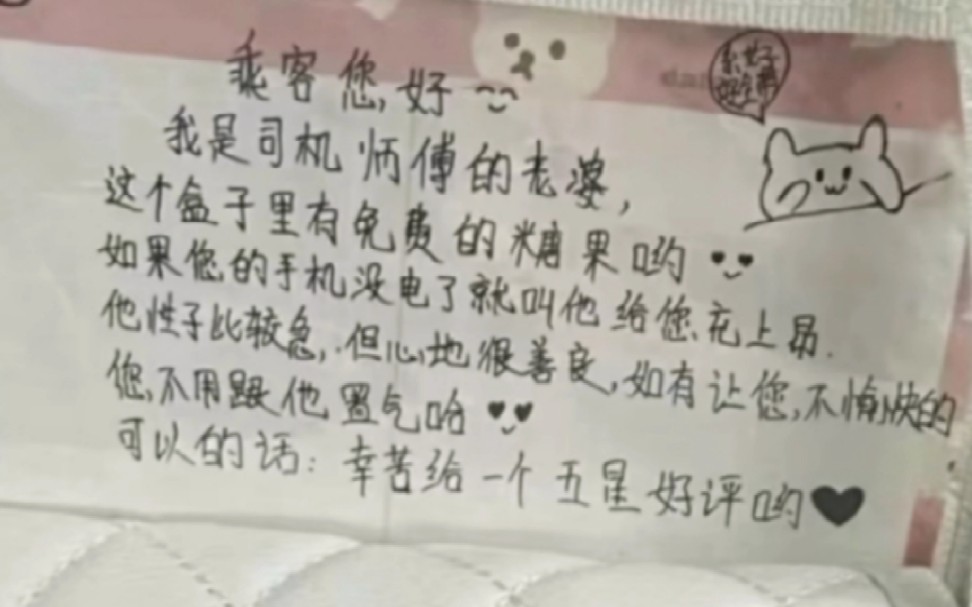 乘客您,好
我是司机师傅的老婆,
这个盒子里有免费的糖果哟
如果您的手机没电了就叫他给您充上昂.
他性子比较急,但心地很善良,如有让您,不愉快的
您,不用跟他置气哈
可以的话:幸苦给一个五星好评哟
系好